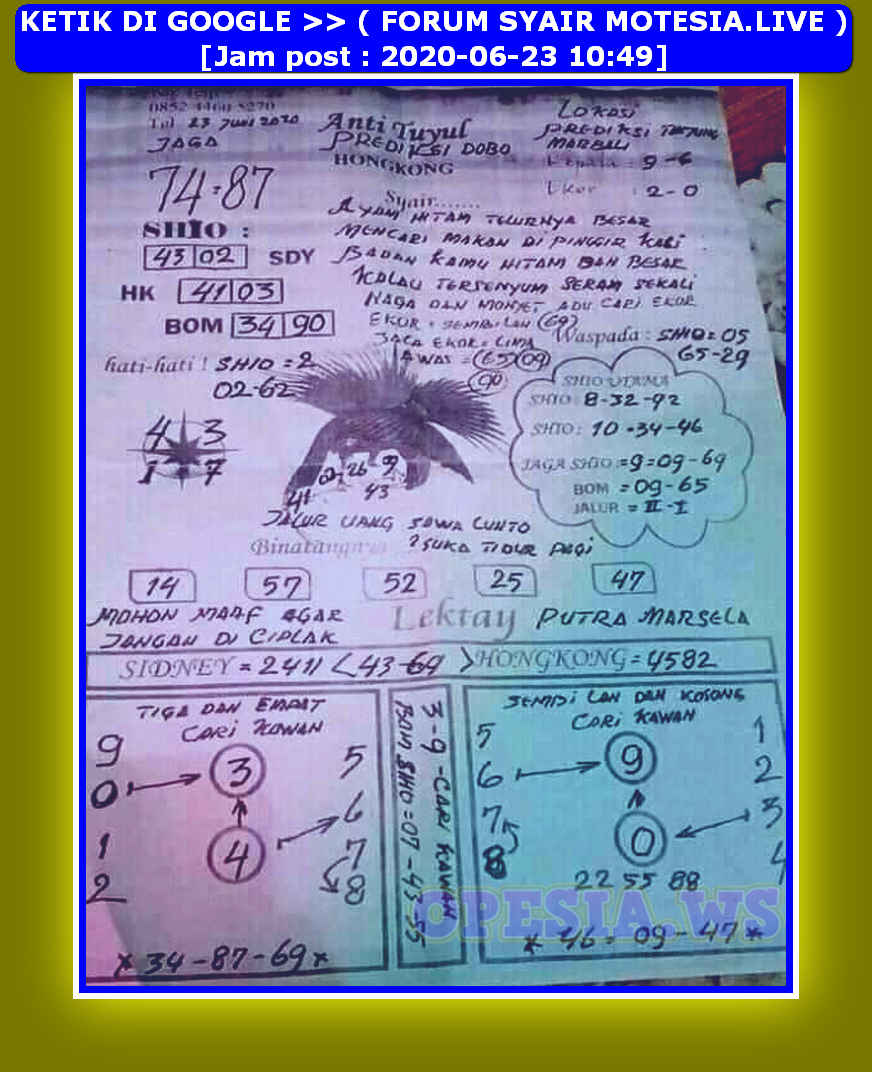 KETIK DI GOOGLE >> ( FORUM SYAIR MOTESIA.LIVE )
[Jam post : 2020-06-23 10:49]
0852 4460 5270
Tgl 23 JUNI 2020
JAGA
74=87
Anti Tuyul
PREDIKSI DOBO
HONGKONG
LOKASI
PREDIKSI TANJUNG
MARBALI
Kepala : 9-6
Ekor : 2-0
SHIO :
43 02 SDY
HK 41 03
BOM 34 90
Syair.......
AYAM HITAM TELURNYA BESAR
MENCARI MAKAN DI PINGGIR KALI
BADAN KAMU HITAM DAN BESAR
KALAU TERSENYUM SERAM SEKALI
NAGA DAN MONYET ADU CARI EKOR
EKOR = SEMBILAN (69)
JAGA EKOR = LIMA
AWAS = (65) (09)
(90)
Waspada : SHIO = 05
65-29
hati-hati ! SHIO = 2
02-62
4 3
1 7
41 02 26 99
43
SHIO UTAMA
SHIO : 8-32-92
SHIO : 10-34-46
JAGA SHIO = 9 = 09-69
BOM = 09-65
JALUR = II-I
JALUR UANG SAWA LUNTO
Binatangnya ? SUKA TIDUR PAGI
14 57 52 25 47
MOHON MAAF AGAR
JANGAN DI CIPLAK
Lektay PUTRA MARSELA
SIDNEY = 2411 < 43-69 > HONGKONG = 4582
TIGA DAN EMPAT
CARI KAWAN
9 3 5
0 6
1 4 7
2 8
* 34-87-69 *
3-9-CARI KAWAN
BOM SHIO = 07-43-55
SEMBILAN DAN KOSONG
CARI KAWAN
5 9 1
6 2
7 0 3
8 4
22 55 88
* 46 = 09-47 *
OPESIA.WS